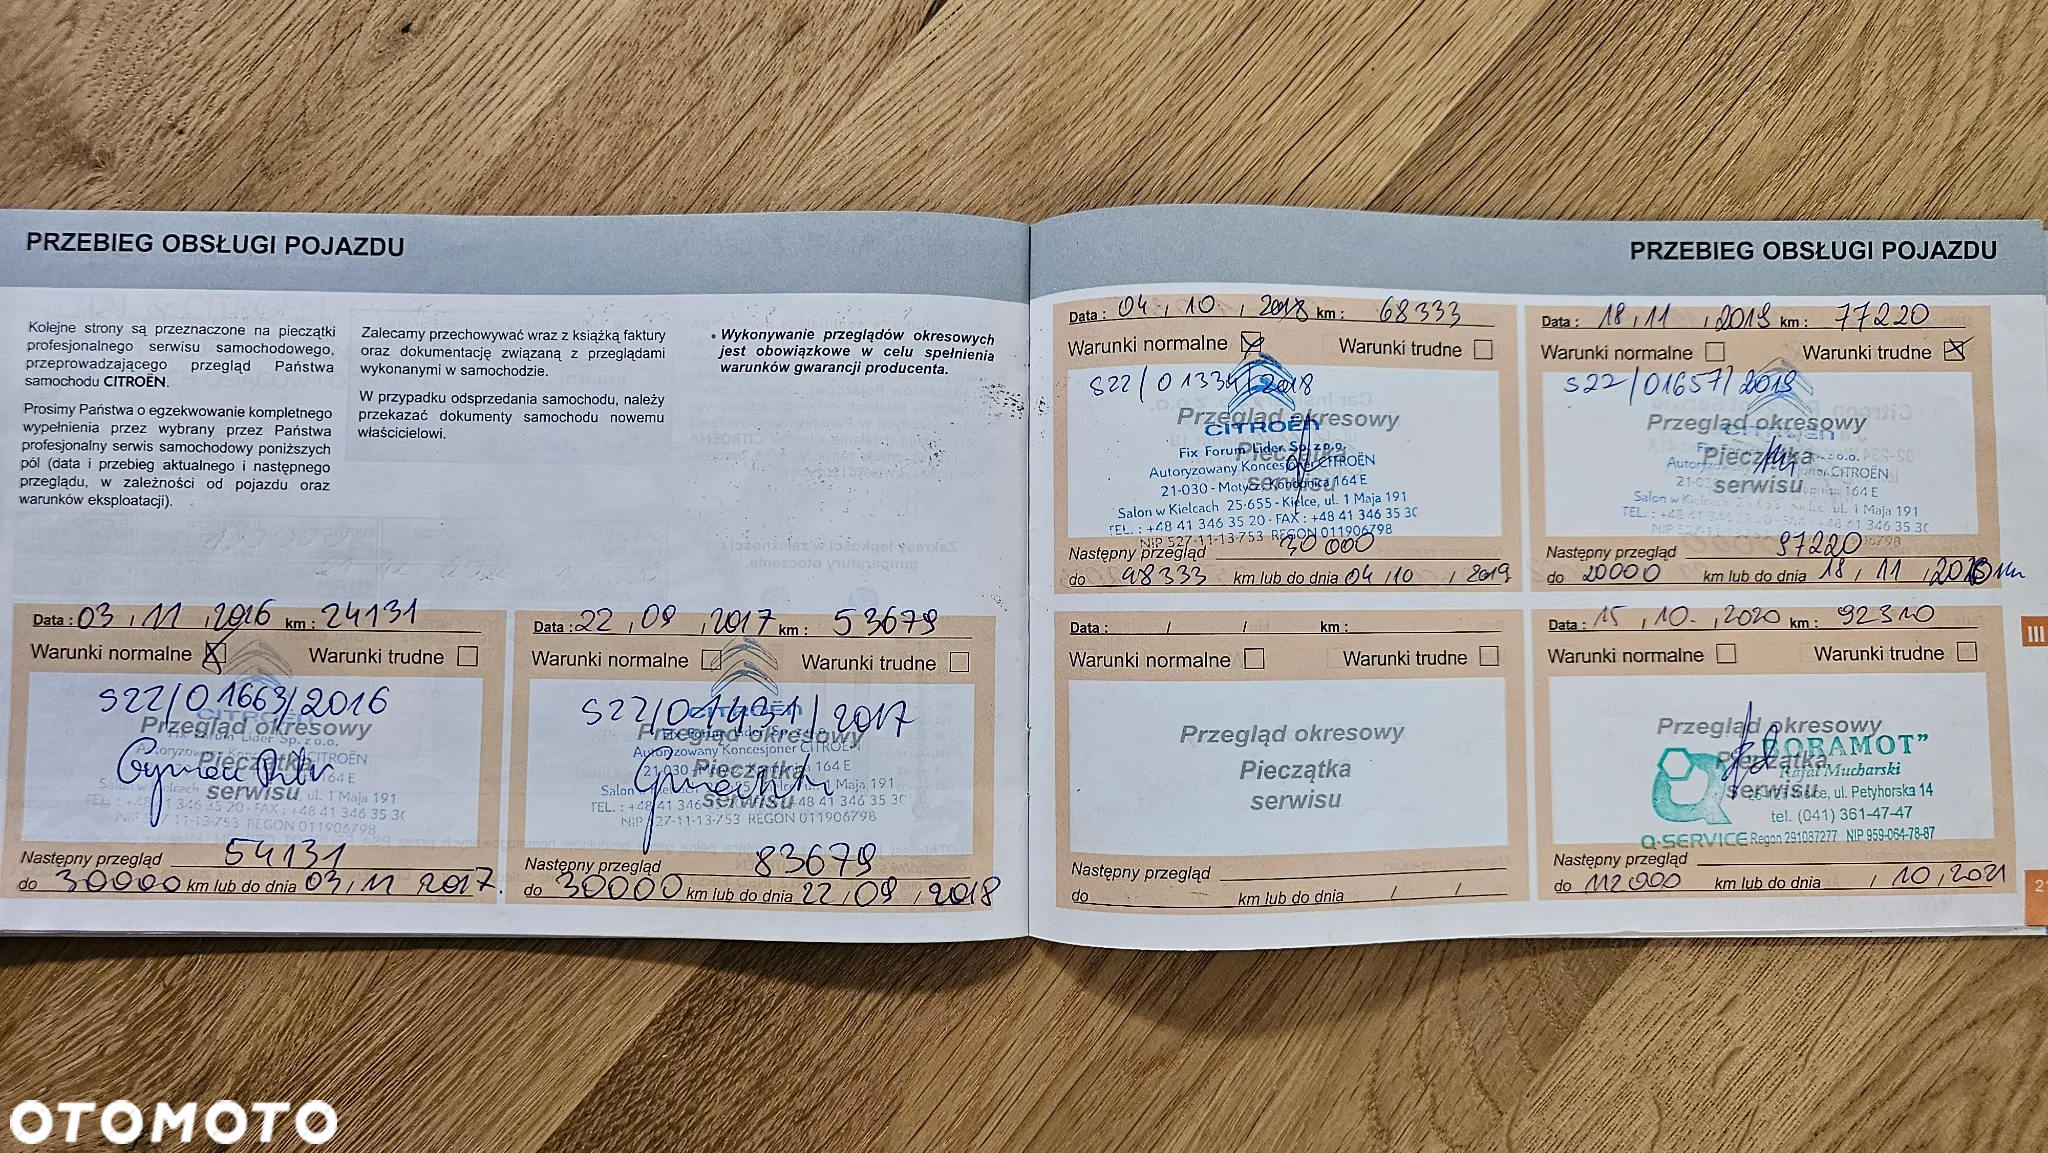 PRZEBIEG OBSŁUGI POJAZDU
Kolejne strony są przeznaczone na pieczątki
profesjonalnego serwisu samochodowego,
przeprowadzającego przegląd Państwa
samochodu CITROËN.
Prosimy Państwa o egzekwowanie kompletnego
wypełnienia przez wybrany przez Państwa
profesjonalny serwis samochodowy poniższych
pól (data i przebieg aktualnego i następnego
przeglądu, w zależności od pojazdu oraz
warunków eksploatacji).
Zalecamy przechowywać wraz z książką faktury
oraz dokumentację związaną z przeglądami
wykonanymi w samochodzie.
W przypadku odsprzedania samochodu, należy
przekazać dokumenty samochodu nowemu
właścicielowi.
• Wykonywanie przeglądów okresowych
jest obowiązkowe w celu spełnienia
warunków gwarancji producenta.
Data : 03 , 11 , 2016 km : 24131
Warunki normalne Warunki trudne
S22/01663/2016
Przegląd okresowy
Pieczątka
serwisu
CITROËN
Następny przegląd 54131
do 30000 km lub do dnia 03, 11 2017.
Data : 22 , 09 , 2017 km : 53679
Warunki normalne Warunki trudne
S22/01431/2017
CITROËN
Przegląd okresowy
Autoryzowany Koncesjoner CITROËN
Pieczątka
serwisu
NIP 527-11-13-753 REGON 011906798
Następny przegląd 83679
do 30000 km lub do dnia 22 , 09 , 2018
PRZEBIEG OBSŁUGI POJAZDU
Data : 04 , 10 , 2018 km : 68333
Warunki normalne Warunki trudne
S22/01334/2018
Przegląd okresowy
CITROËN
Fix Forum Lider Sp. z o.o.
Pieczątka
Autoryzowany Koncesjoner CITROËN
serwisu
21-030 - Motycz, Konopnica 164 E
Salon w Kielcach 25-655 - Kielce, ul. 1 Maja 191
TEL. : +48 41 346 35 20 - FAX : +48 41 346 35 30
NIP 527-11-13-753 REGON 011906798
Następny przegląd 30 000
do 98333 km lub do dnia 04 , 10 , 2019
Data : 18 , 11 , 2019 km : 77220
Warunki normalne Warunki trudne
S22/01657/2019
Przegląd okresowy
CITROËN
Pieczątka
serwisu
164 E
ul. 1 Maja 191
Następny przegląd 97220
do 20000 km lub do dnia 18 , 11 , 2020
Data : / / km :
Warunki normalne Warunki trudne
Przegląd okresowy
Pieczątka
serwisu
Następny przegląd
do km lub do dnia / /
Data : 15 , 10. , 2020 km : 92310
Warunki normalne Warunki trudne
Przegląd okresowy
Pieczątka
serwisu
"BORAMOT"
Rafał Mucharski
Kielce, ul. Petyhorska 14
tel. (041) 361-47-47
Q-SERVICE Regon 291087277 NIP 959-064-78-87
Następny przegląd
do 112000 km lub do dnia / 10 , 2021
III
21
OTOMOTO